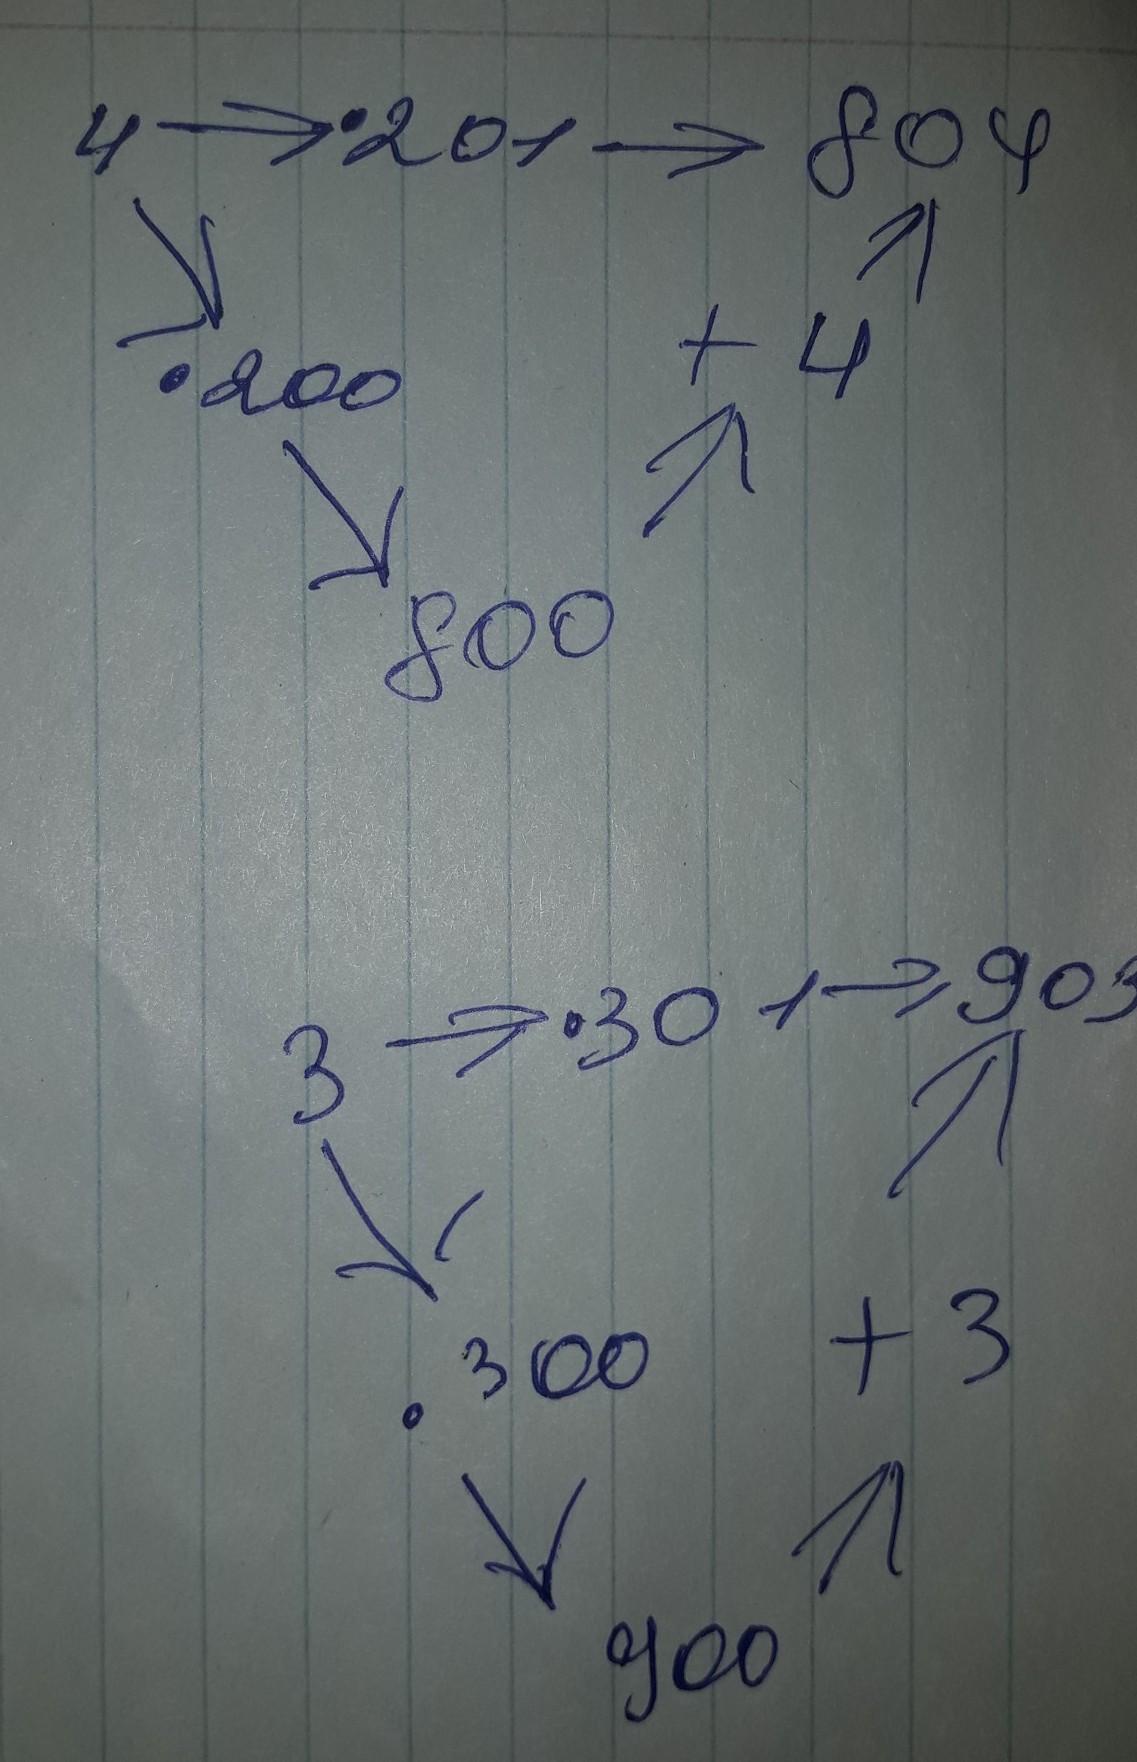 4 → ·201 → 804
·200 + 4
800
3 → ·301 → 903
·300 + 3
900